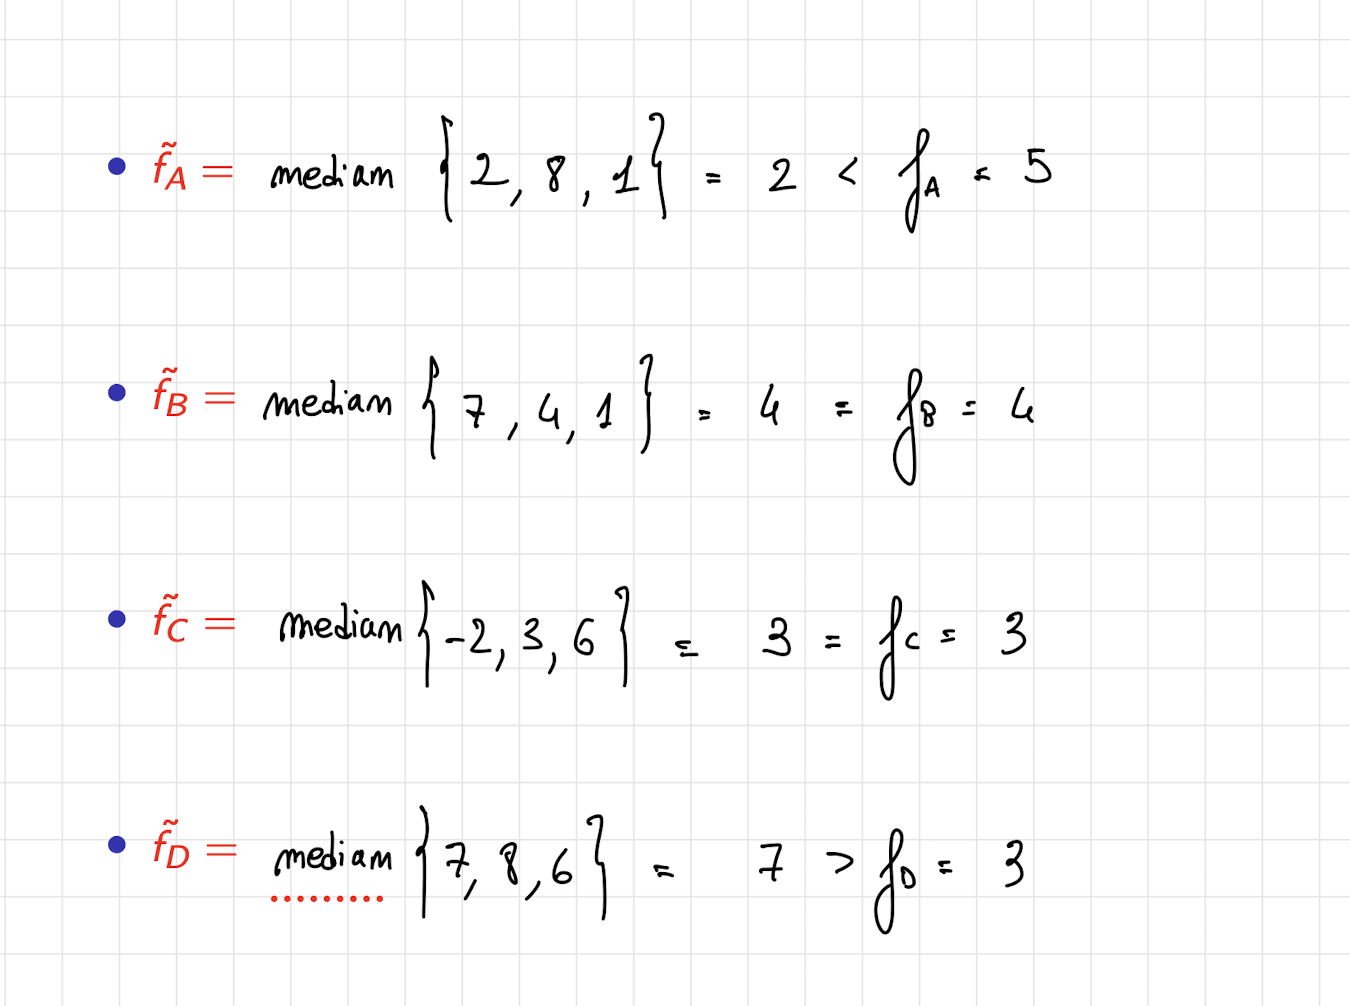 • f̃_A = median {2, 8, 1} = 2 < f_A = 5
• f̃_B = median {7, 4, 1} = 4 = f_B = 4
• f̃_C = median {-2, 3, 6} = 3 = f_C = 3
• f̃_D = median {7, 8, 6} = 7 > f_D = 3